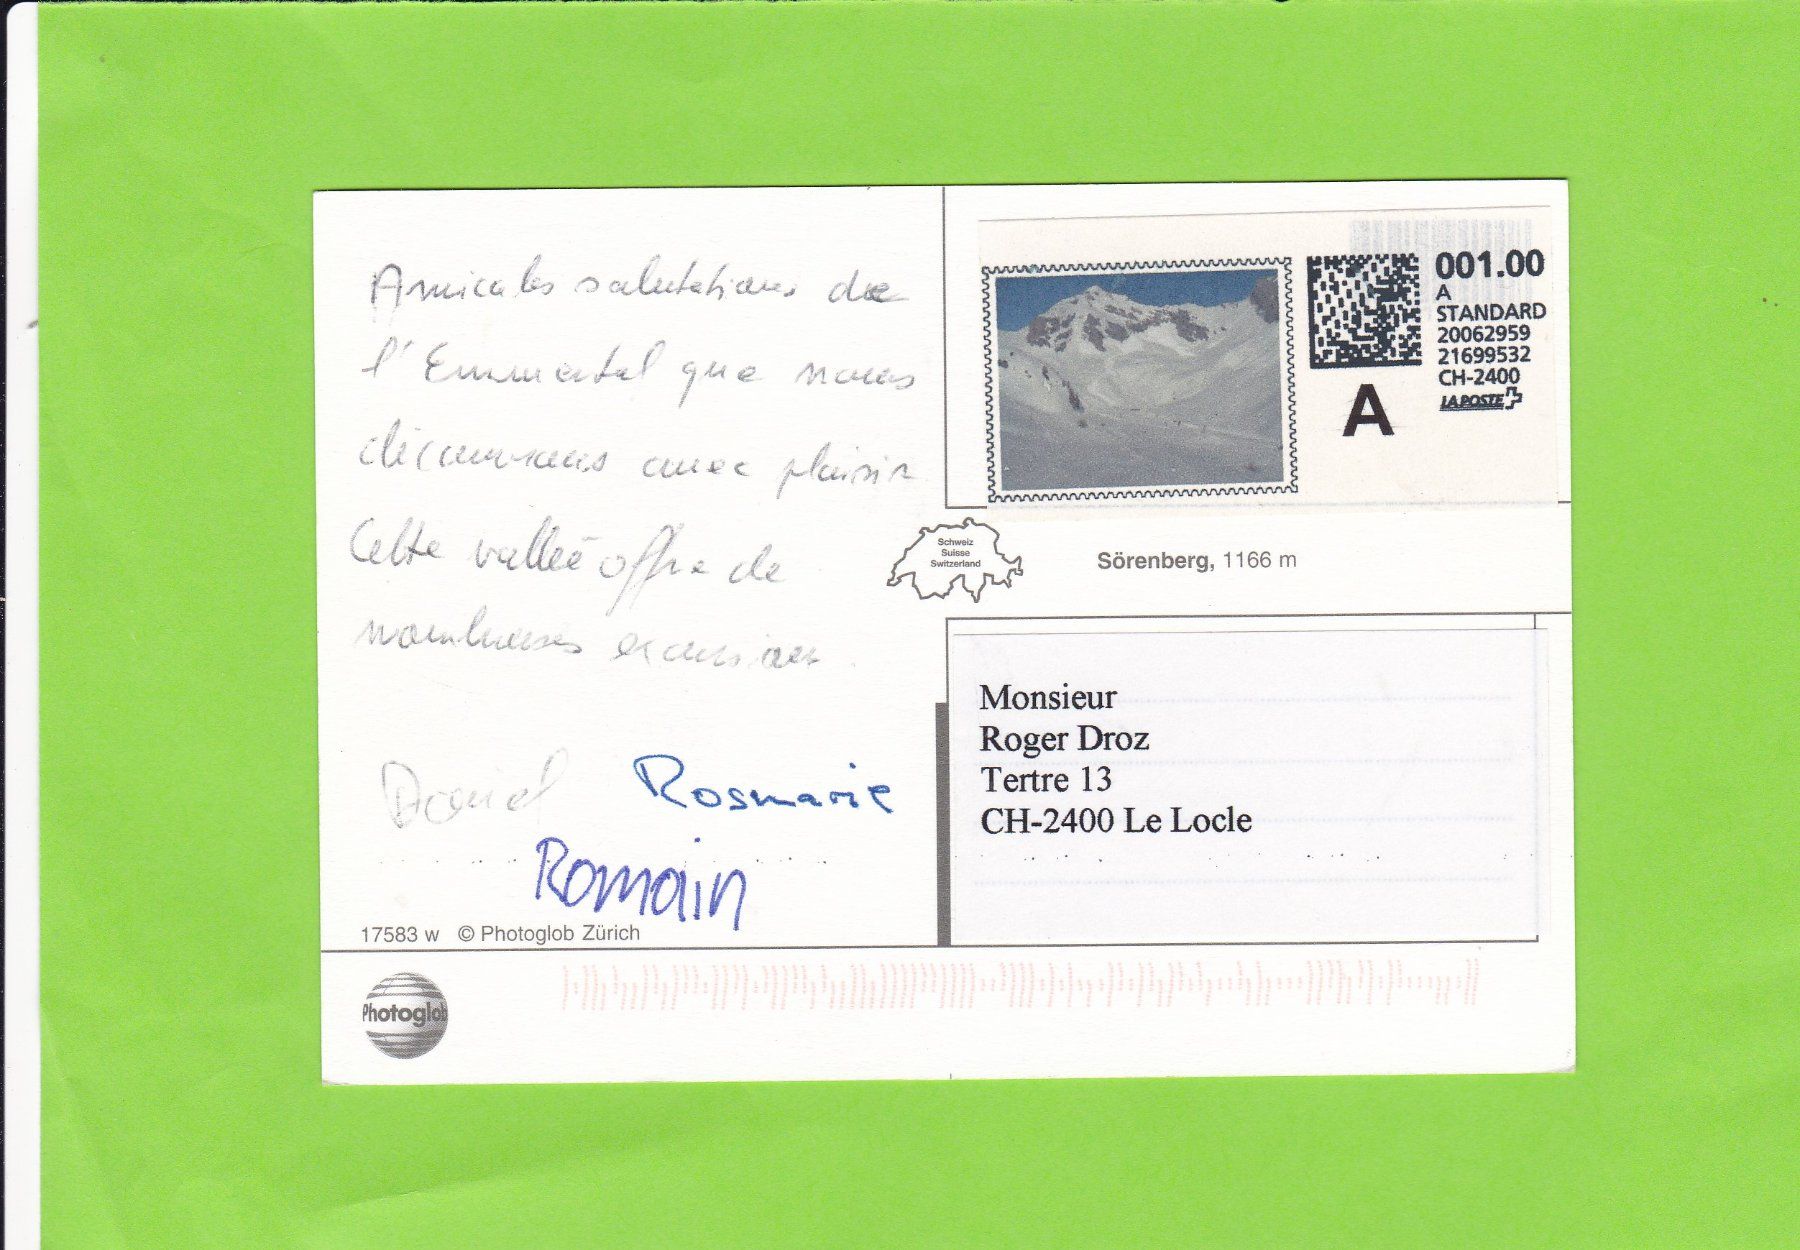 Amicales salutations de
l'Emmental que nous
découvrons avec plaisir
Cette vallée offre de
nombreuses excursions.
Daniel Rosmarie
Romain
17583 w © Photoglob Zürich
Photoglob
001.00
A
STANDARD
20062959
21699532
CH-2400
LA POSTE
A
Schweiz
Suisse
Switzerland
Sörenberg, 1166 m
Monsieur
Roger Droz
Tertre 13
CH-2400 Le Locle